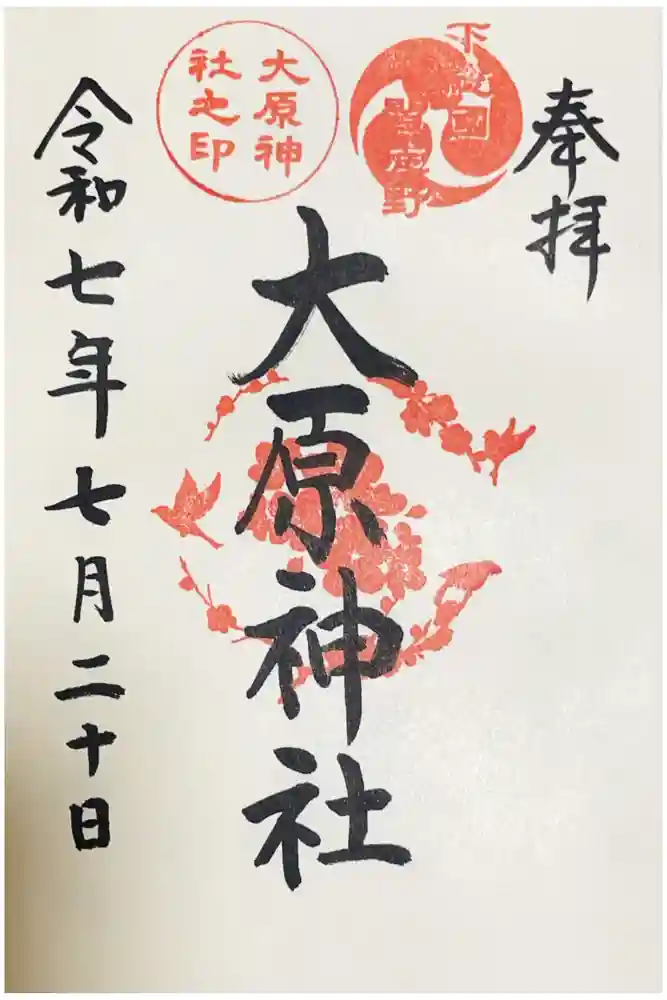 奉拝
下総國
習志野
大原神
社之印
大原神社
令和七年七月二十日